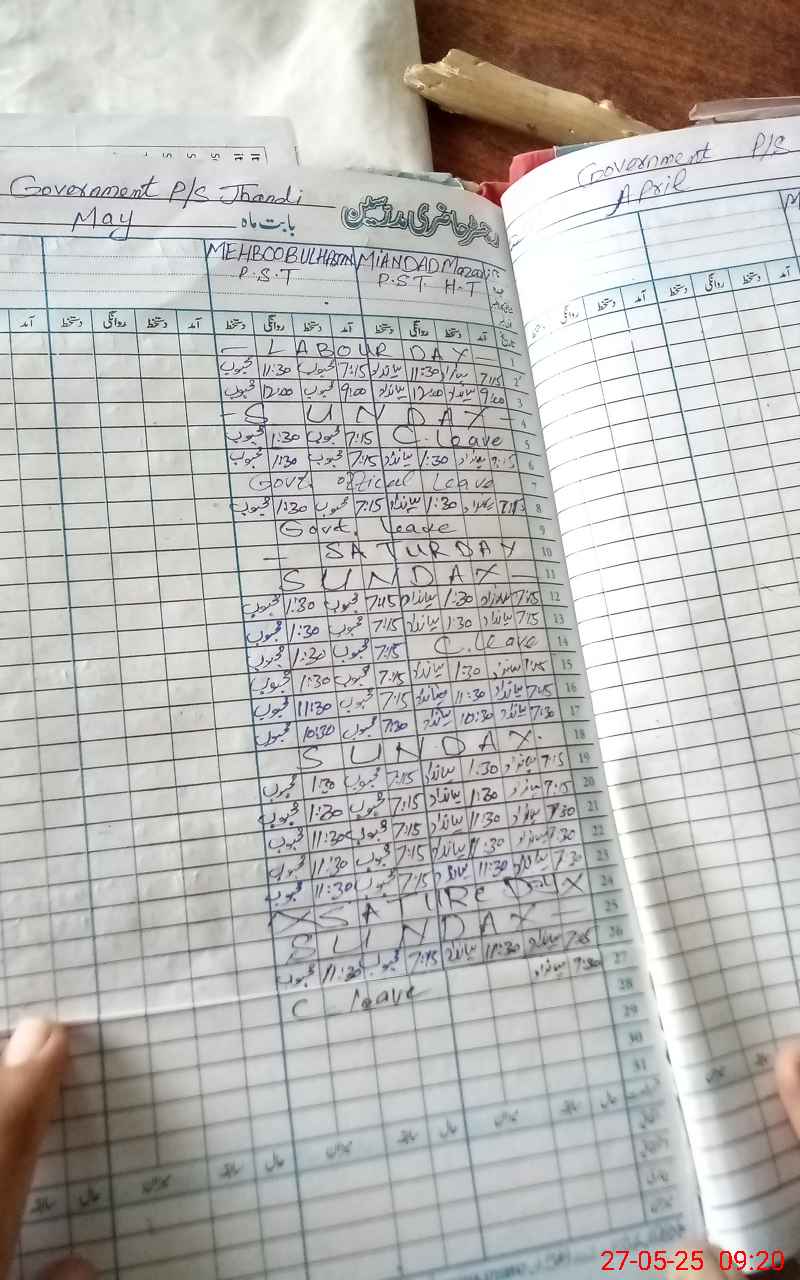 Government P/S Jhandi
رجسٹر حاضری مدرسین
بابت ماہ May
MEHBOOBULHASSN MIANDAD Mazari
P.S.T P.S.T H.T
آمد دستخط روانگی دستخط آمد دستخط روانگی دستخط آمد
1 — LABOUR DAY —
2 7:15 میانداد 11:30 میانداد 7:15 محبوب 11:30 محبوب
3 9:00 میانداد 12:00 میانداد 9:00 محبوب 12:00 محبوب
4 — SUNDAY —
5 C. leave 7:15 محبوب 1:30 محبوب
6 7:15 میانداد 1:30 میانداد 7:15 محبوب 1:30 محبوب
7 Govt. offical Leave
8 7:15 میانداد 1:30 میانداد 7:15 محبوب 1:30 محبوب
9 Govt. Leave
10 — SATURDAY
11 SUNDAY —
12 7:15 میانداد 1:30 میانداد 7:15 محبوب 1:30 محبوب
13 7:15 میانداد 1:30 میانداد 7:15 محبوب 1:30 محبوب
14 C. leave 7:15 محبوب 1:30 محبوب
15 7:15 میانداد 1:30 میانداد 7:15 محبوب 1:30 محبوب
16 7:15 میانداد 11:30 میانداد 7:15 محبوب 11:30 محبوب
17 7:30 میانداد 10:30 میانداد 7:30 محبوب 10:30 محبوب
18 SUNDAY.
19 7:15 میانداد 1:30 میانداد 7:15 محبوب 1:30 محبوب
20 7:15 میانداد 1:30 میانداد 7:15 محبوب 1:30 محبوب
21 7:30 میانداد 11:30 میانداد 7:15 محبوب 11:30 محبوب
22 7:30 میانداد 11:30 میانداد 7:15 محبوب 11:30 محبوب
23 7:30 میانداد 11:30 میانداد 7:15 محبوب 11:30 محبوب
24 SATUREDAY
25 SUNDAY —
26 7:15 میانداد 11:30 میانداد 7:15 محبوب 11:30 محبوب
27 7:30 میانداد C. leave
28
29
30
31
Government P/S
April
آمد دستخط روانگی دستخط
27-05-25 09:20